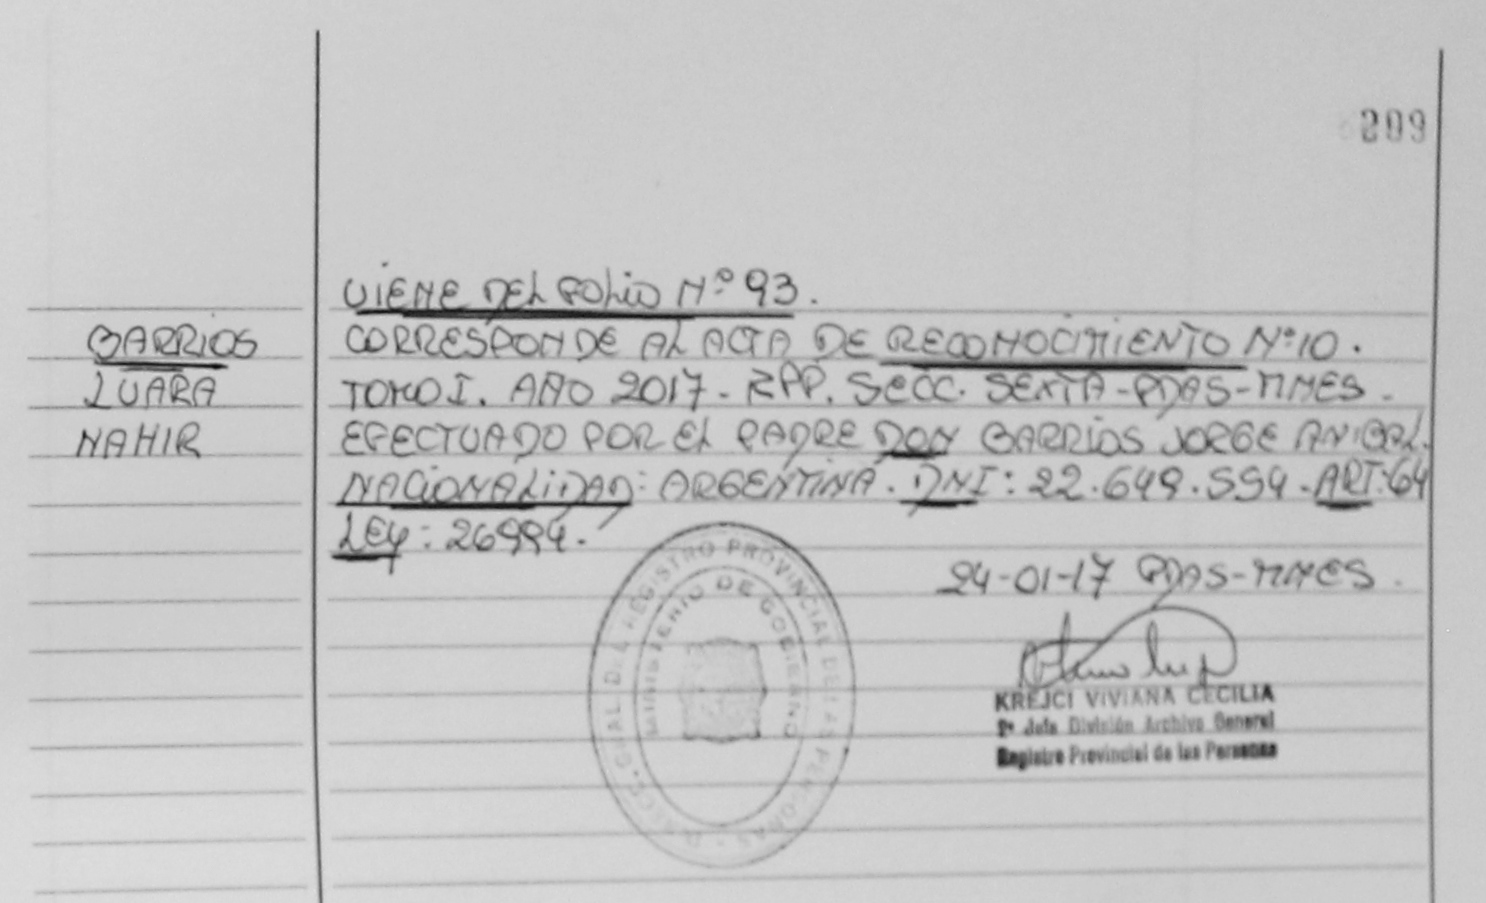 209
VIENE DEL FOLIO Nº 93.
BARRIOS CORRESPONDE AL ACTA DE RECONOCIMIENTO Nº 10.
LUARA TOMO I. AÑO 2017 - RPP. SECC. SEXTA - PDAS - MNES.
NAHIR EFECTUADO POR EL PADRE DON BARRIOS JORGE ANIBAL.
NACIONALIDAD: ARGENTINA. DNI: 22.649.594. ART: 64
LEY: 26994.
24-01-17 PDAS-MNES.
KREJCI VIVIANA CECILIA
2º Jefe División Archivo General
Registro Provincial de las Personas
REGISTRO PROVINCIAL DE LAS PERSONAS
MINISTERIO DE GOBIERNO